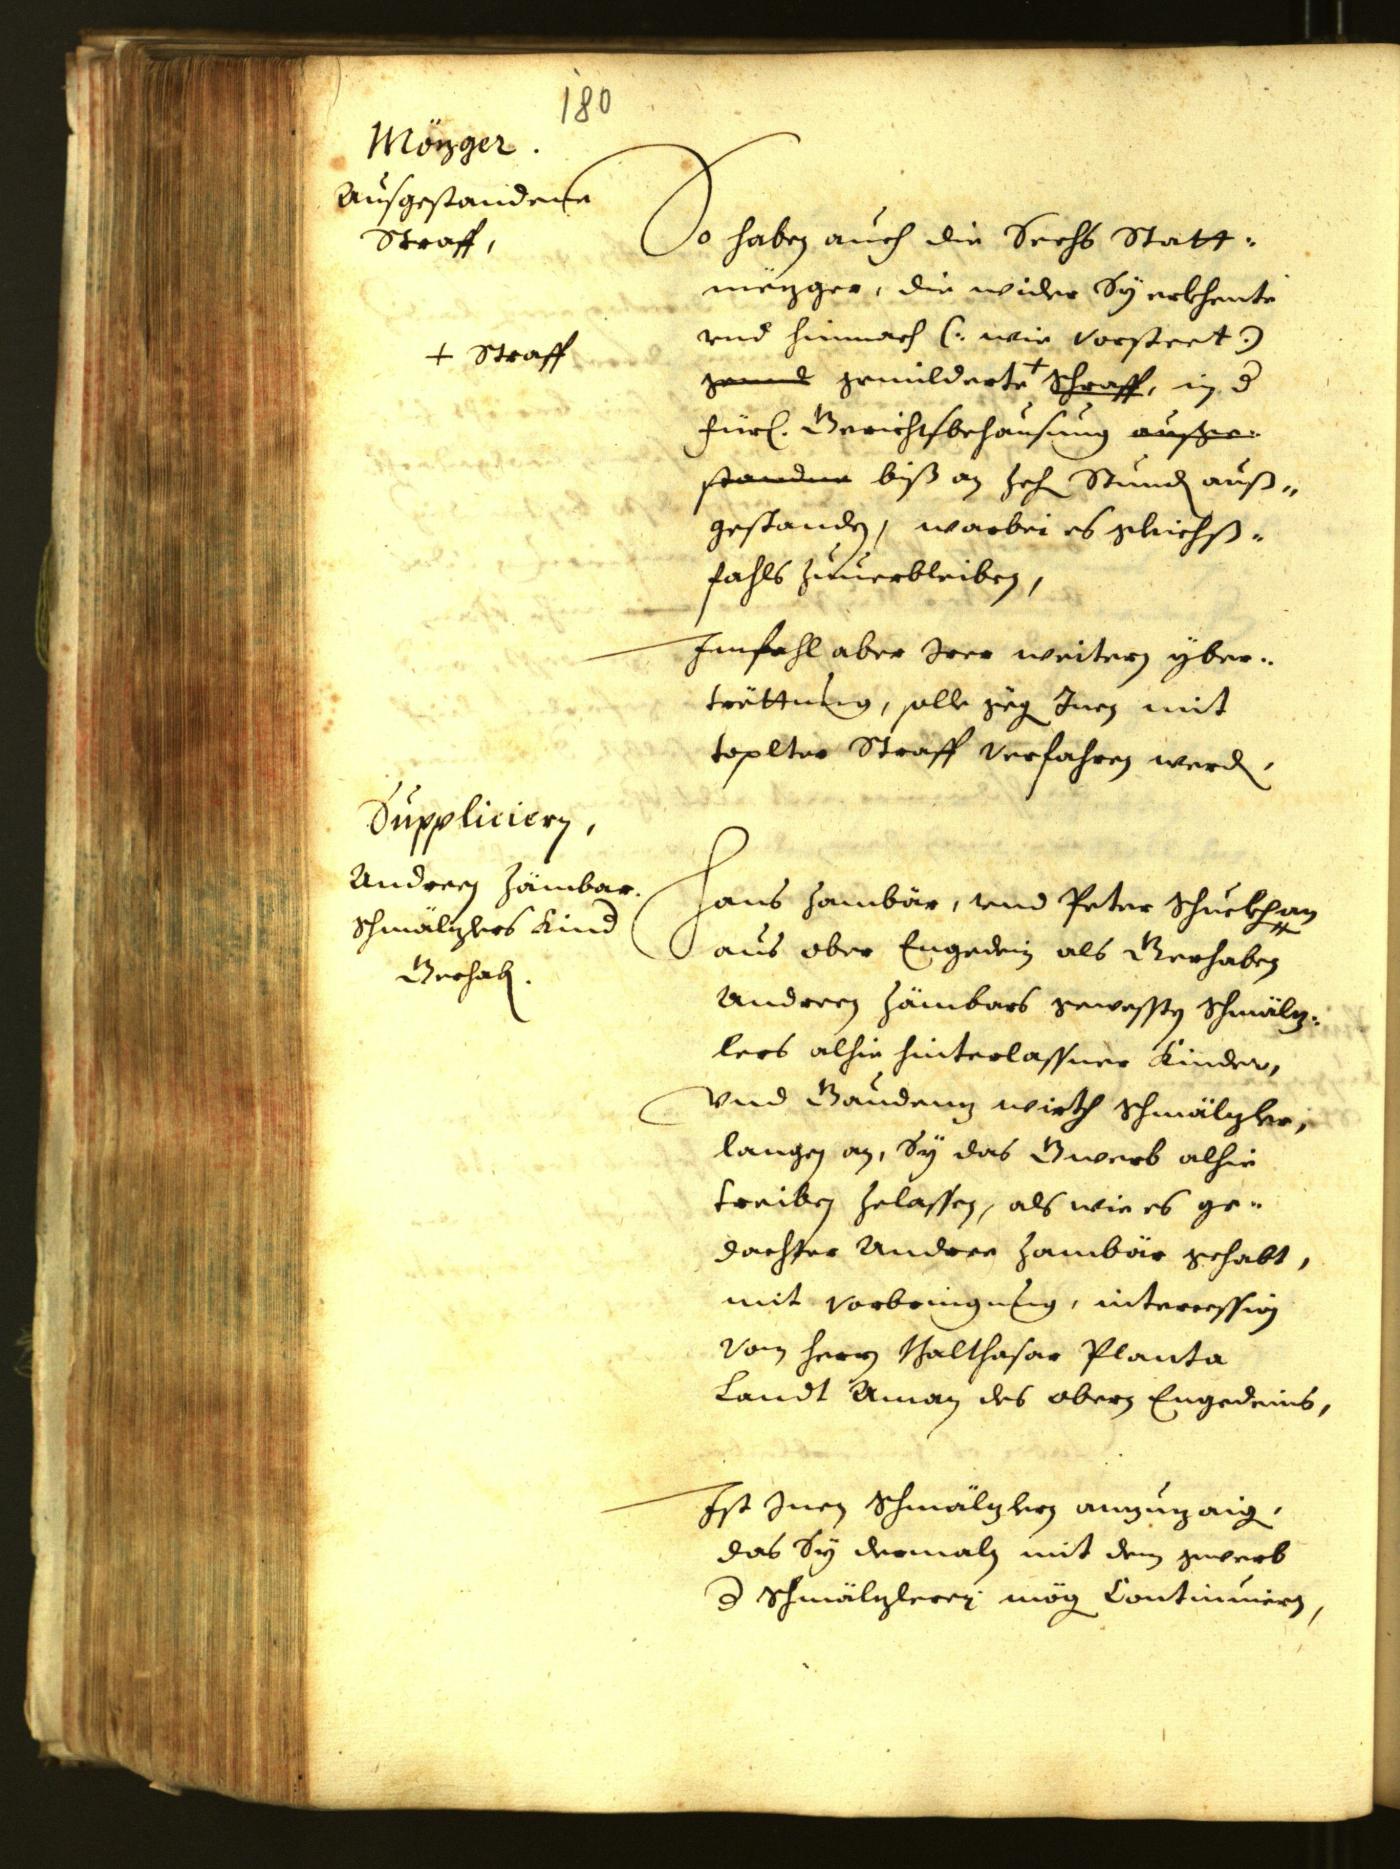 180
Mözger.
Ausgestandene
Straff,
So haben auch die Sechs Statt-
mëzger, die wider Sy erkhente
vnd hinnach (: wie vorsteet :)
+ Straff
gemilderte + Schraff, in d
fürl. Gerichtsbehausung außge-
standne biß an zeh Stund auß-
gestanden, warbei es gleichß-
fahls zuuerbleiben,
Imfahl aber Irer weitern yber-
trëttung, solle geg Inen mit
toplter Straff verfahren werd,
Suppliciern,
Andreen Zämbar.
Schmälzlers Kind
Gerhab.
Hans Zambär, vnd Peter Schuckhan
aus ober Engedein als Gerhaben
Andreen Zämbars gewessten Schmälz-
lers alhie hinterlassner Kinder,
vnd Gaudenz wirth Schmälzler,
langen an, Sy das Gwerb alhie
treiben zelassen, als wie es ge-
dachter Andree Zambär gehabt,
mit vorbringung, intercession
von herrn Walthasar Planta
Landt Aman des obern Engedeins,
Ist Inen Schmälzlern anzuzaig,
das Sy dermaln mit dem gwerb
d Schmälzlerey mög Continuiern,